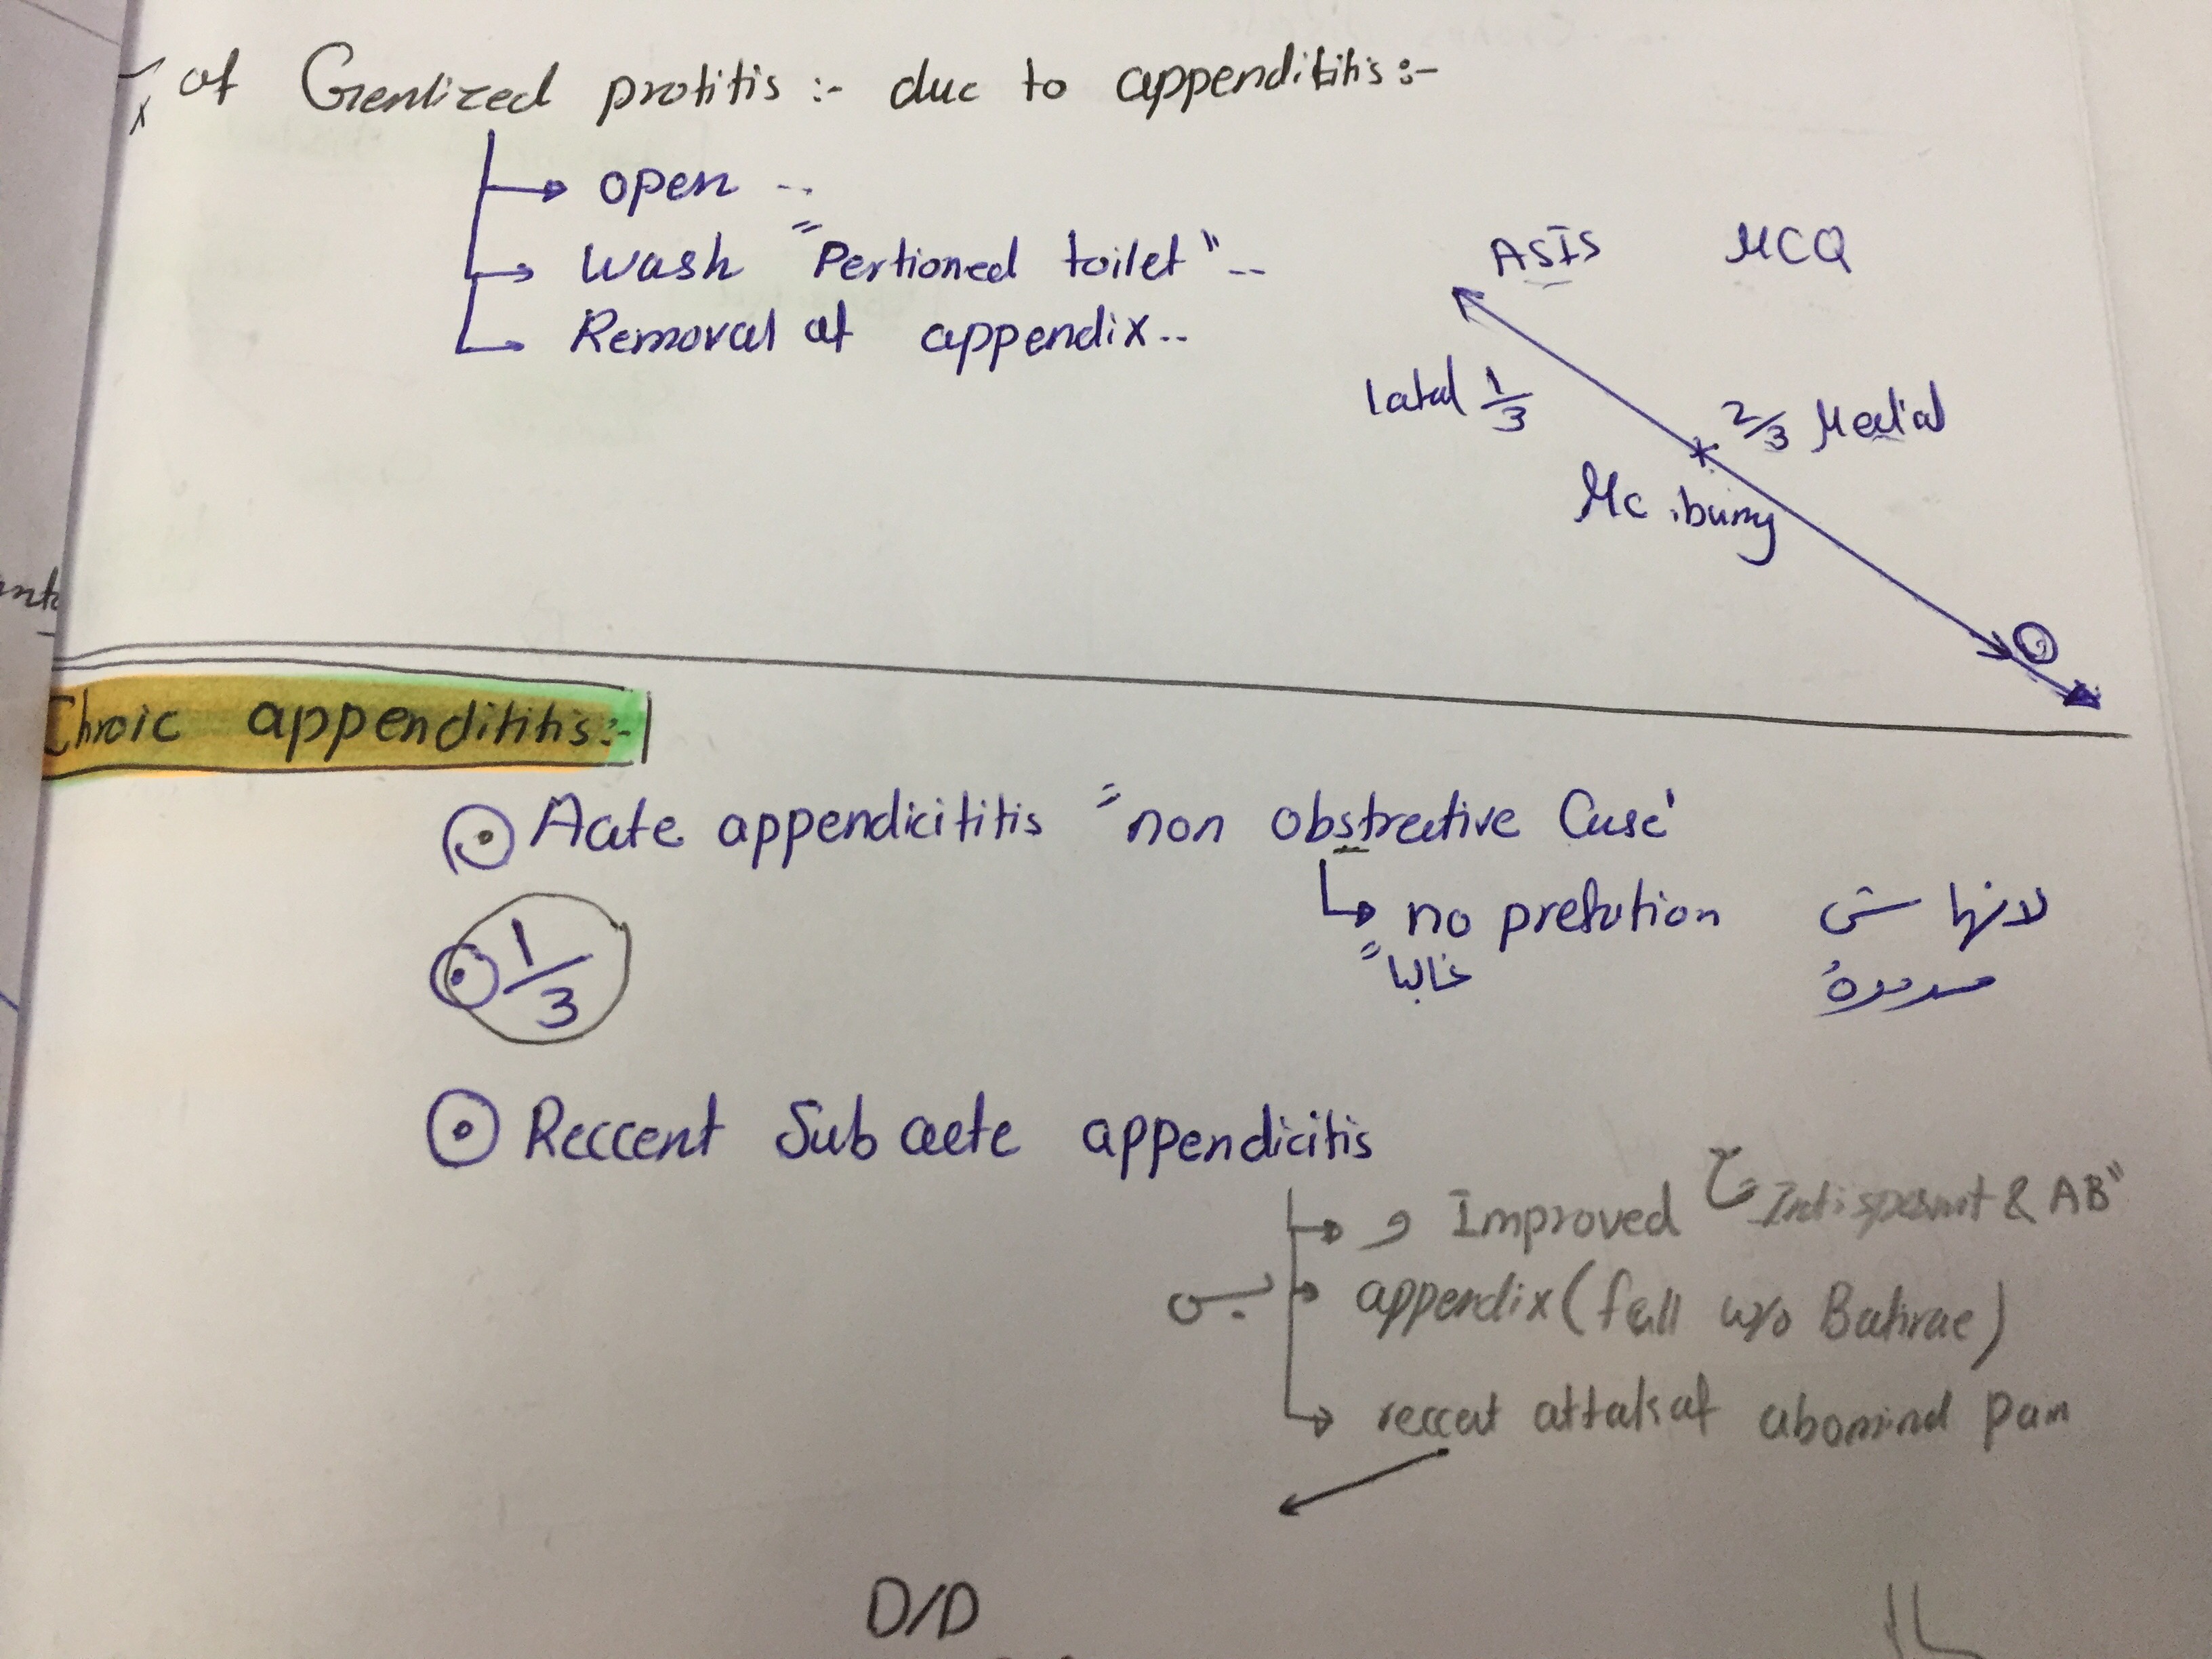 of Genlized protitis :- due to appendititis :-
open --
Wash "Pertioned toilet" --
Removal of appendix --
ASIS MCQ
latal 1/3
2/3 Medial
Mc burny
Chroic appendititis :-
Aate appendicititis "non obstrective Case"
no prefution لانها مش
"غالبا" مسدودة
1/3
Reccent Sub acete appendicitis
و Improved Intispasmt & AB"
بس appendix (fall w/o Batirae)
reccet attak of abomind pain
D/D